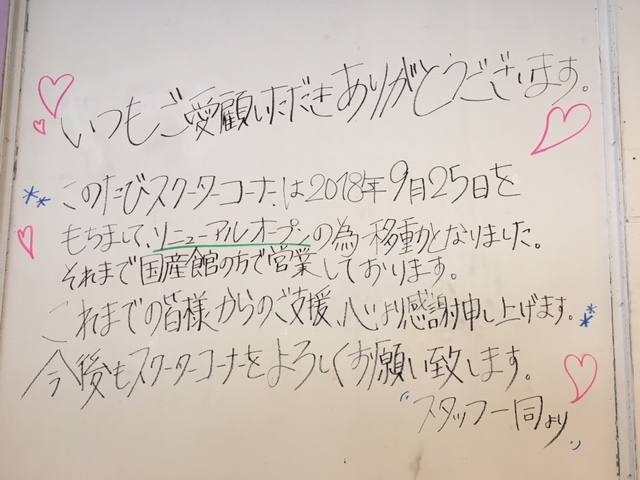 いつもご愛顧いただきありがとうございます。
このたびスクーターコーナーは2018年9月25日を
もちまして、リニューアルオープンの為移動となりました。
それまで国産館の方で営業しております。
これまでの皆様からのご支援、心より感謝申し上げます。
今後もスクーターコーナーをよろしくお願い致します。
"スタッフ一同より"